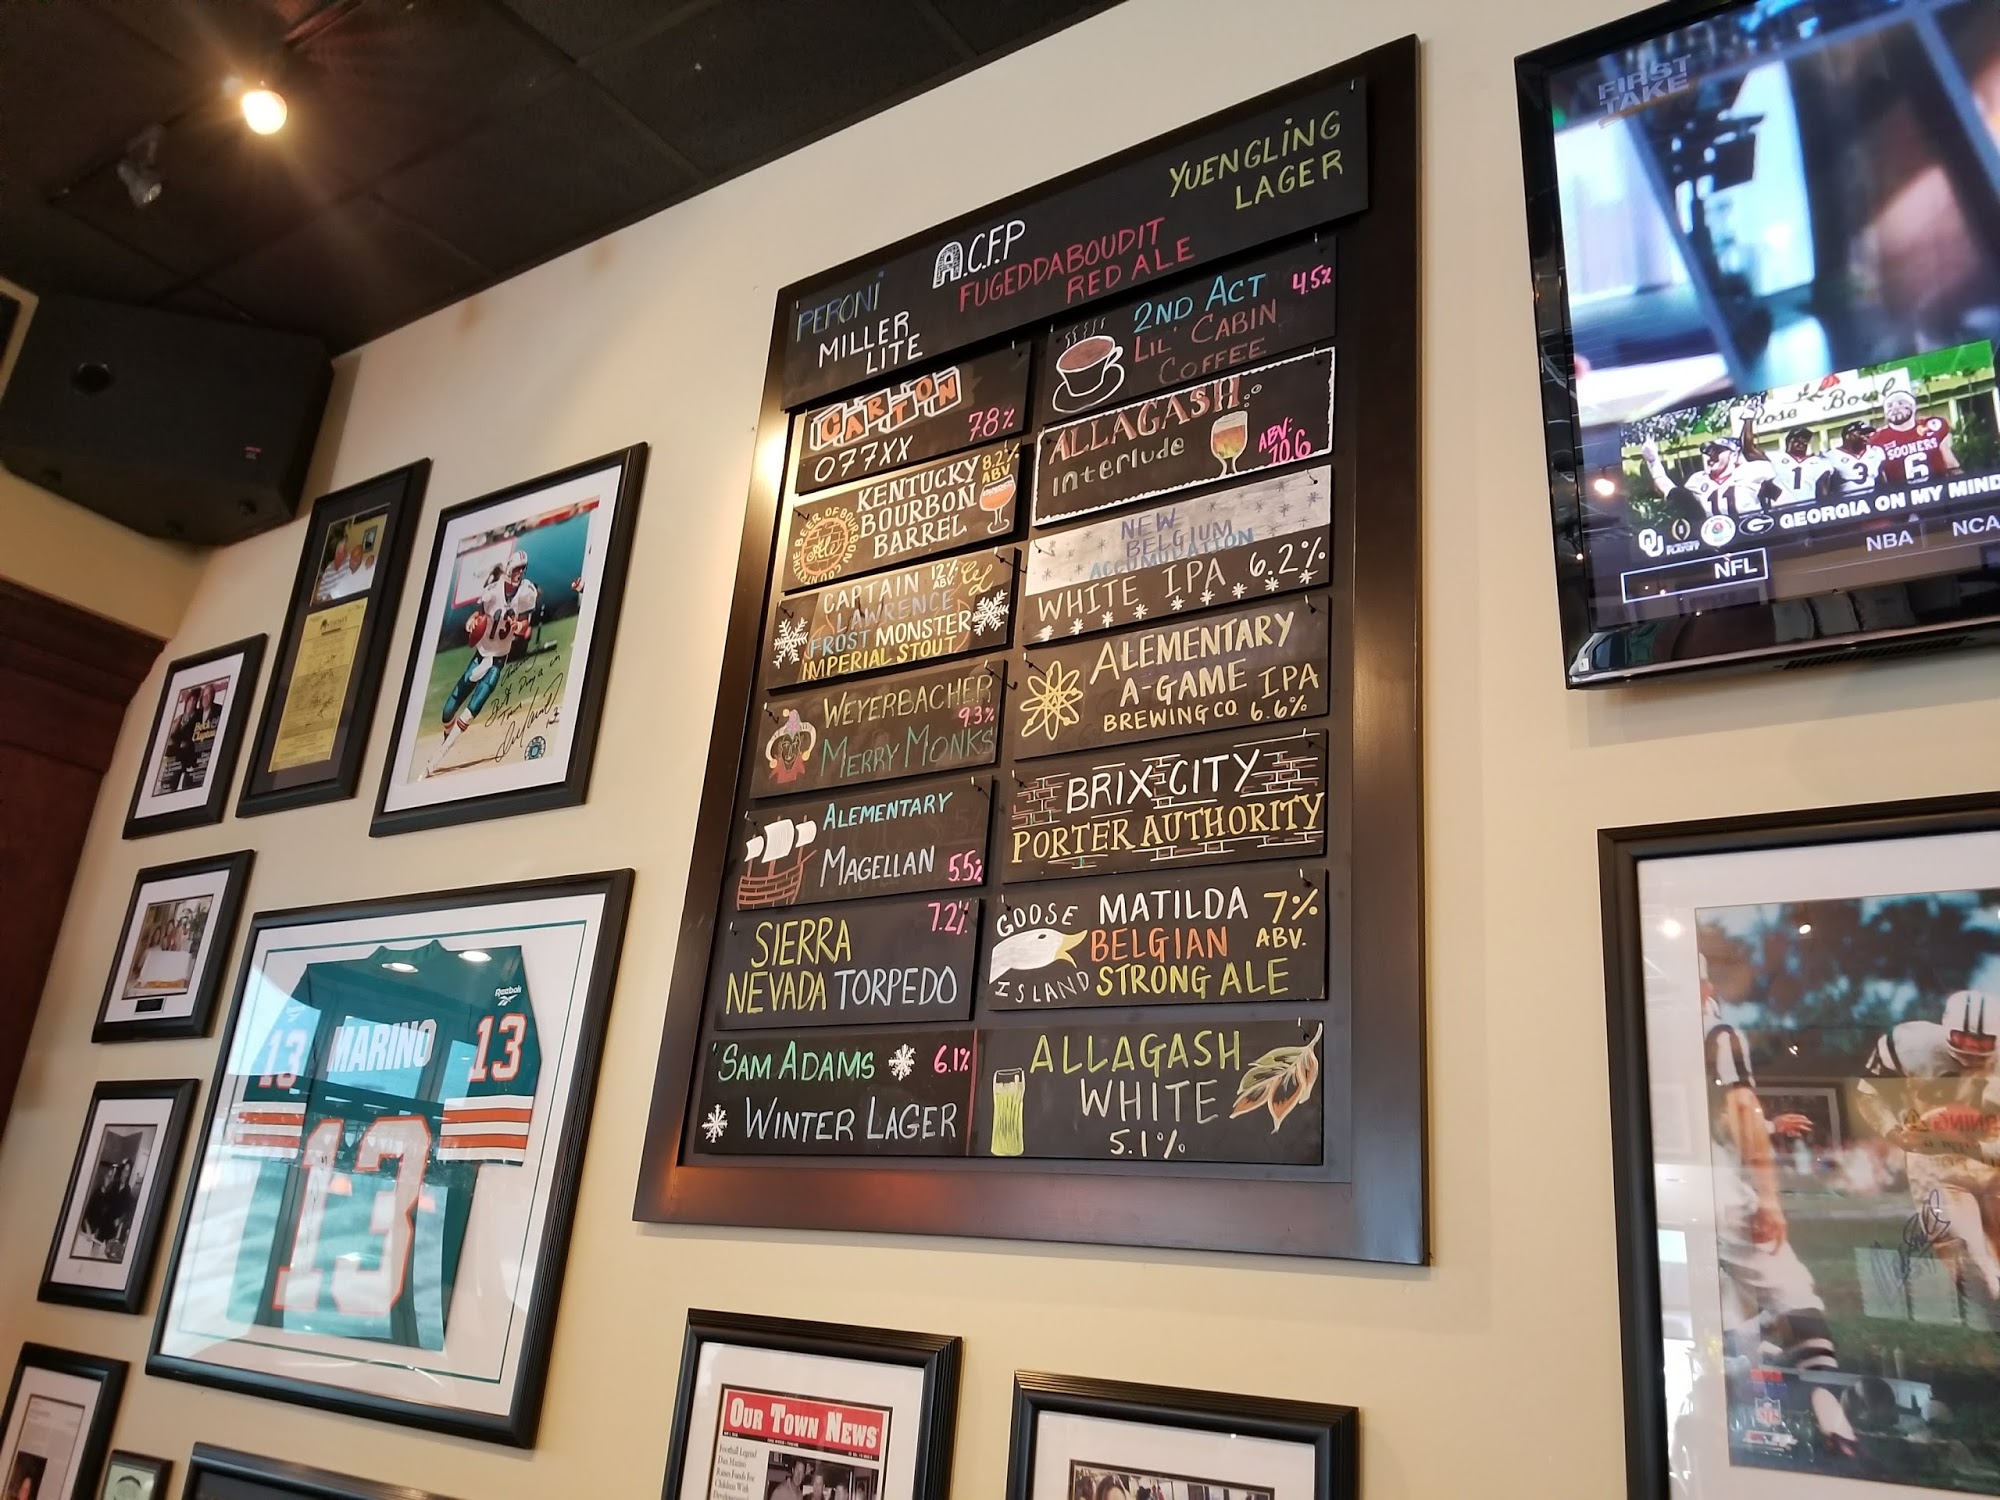 PERONI
MILLER
LITE
A.C.F.P
FUGEDDABOUDIT
RED ALE
YUENGLING
LAGER
CARTON
077XX
78%
2ND ACT 4.5%
LIL' CABIN
COFFEE
KENTUCKY 8.2%
BOURBON ABV
BARREL
THE BEER OF BOURBON COUNTRY
Ale
ALLAGASH
interlude
ABV:
10.6
CAPTAIN 12%
ABV.
LAWRENCE
FROST MONSTER
IMPERIAL STOUT
NEW
BELGIUM
ACCUMULATION
WHITE IPA 6.2%
WEYERBACHER
9.3%
MERRY MONKS
ALEMENTARY
A-GAME IPA
BREWING CO. 6.6%
ALEMENTARY
MAGELLAN 5.5%
BRIX CITY
PORTER AUTHORITY
7.2%
SIERRA
NEVADA TORPEDO
GOOSE
ISLAND
MATILDA 7%
BELGIAN ABV.
STRONG ALE
SAM ADAMS 6.1%
WINTER LAGER
ALLAGASH
WHITE
5.1%
FIRST
TAKE
Rose Bowl
1
3
SOONERS
6
GEORGIA ON MY MIND
NFL
NBA
NCA
13
Reebok
13
MARINO
13
13
OUR TOWN NEWS
Football Legend
Dan Marino
Raises Funds For
Children With
NFL